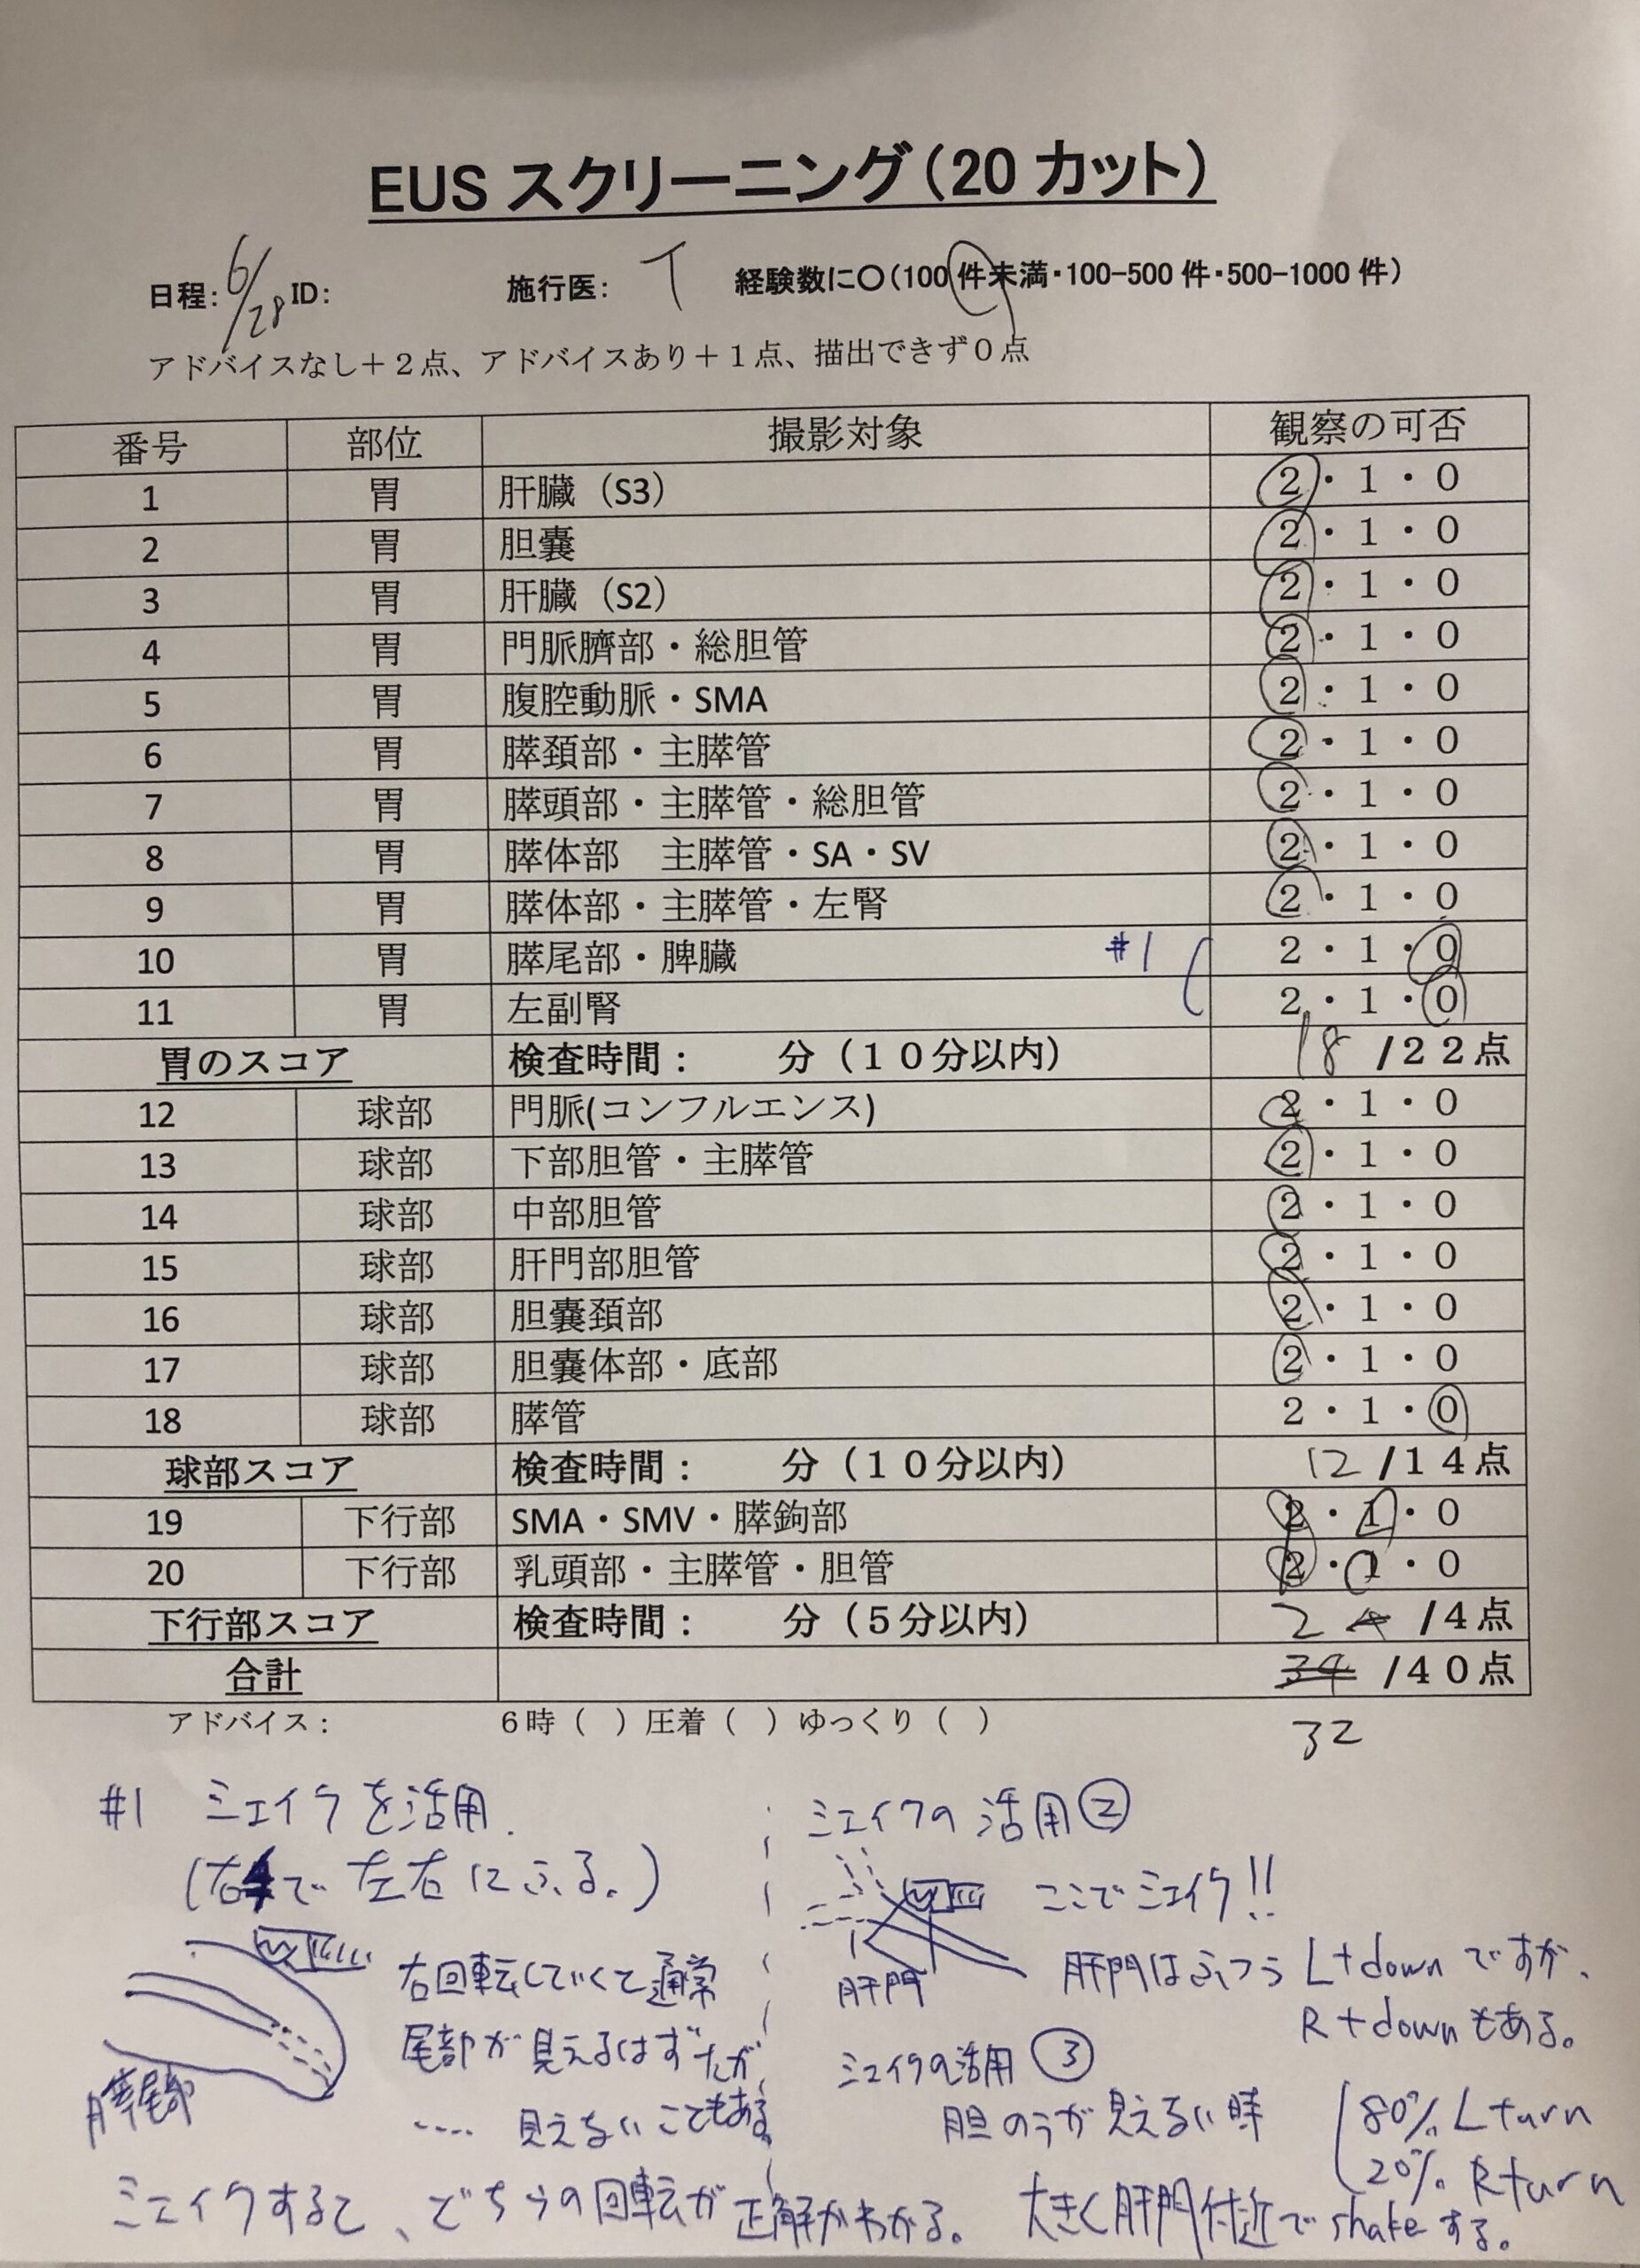 EUS スクリーニング（20 カット）
日程: 6/28 ID: 施行医: T 経験数に○（100 件未満・100-500 件・500-1000 件）
アドバイスなし＋２点、アドバイスあり＋１点、描出できず０点
番号 部位 撮影対象 観察の可否
1 胃 肝臓（S3） 2・1・0
2 胃 胆嚢 2・1・0
3 胃 肝臓（S2） 2・1・0
4 胃 門脈臍部・総胆管 2・1・0
5 胃 腹腔動脈・SMA 2・1・0
6 胃 膵頚部・主膵管 2・1・0
7 胃 膵頭部・主膵管・総胆管 2・1・0
8 胃 膵体部　主膵管・SA・SV 2・1・0
9 胃 膵体部・主膵管・左腎 2・1・0
10 胃 膵尾部・脾臓 #1 2・1・0
11 胃 左副腎 2・1・0
胃のスコア 検査時間：　　分（１０分以内） 18 /２２点
12 球部 門脈(コンフルエンス) 2・1・0
13 球部 下部胆管・主膵管 2・1・0
14 球部 中部胆管 2・1・0
15 球部 肝門部胆管 2・1・0
16 球部 胆嚢頚部 2・1・0
17 球部 胆嚢体部・底部 2・1・0
18 球部 膵管 2・1・0
球部スコア 検査時間：　　分（１０分以内） 12 /１４点
19 下行部 SMA・SMV・膵鉤部 2・1・0
20 下行部 乳頭部・主膵管・胆管 2・1・0
下行部スコア 検査時間：　　分（５分以内） 2 4 /４点
合計 34 /４０点
アドバイス： ６時（ ）圧着（ ）ゆっくり（ ） 32
#1 シェイクを活用.
(右手で 左右にふる。)
右回転していくと通常
尾部が見えるはずだが、
.... 見えないこともある。
膵尾部
シェイクすると、どちらの回転が正解かわかる。
シェイクの活用②
ここでシェイク!!
肝門
肝門はふつう L+down ですが、
R+downもある。
シェイクの活用③
胆のうが見えない時 80% L turn
20% R turn
大きく肝門付近でshakeする。